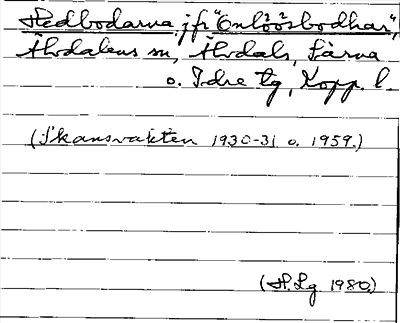 Hedbodarna jfr "Enlöösbodhar",
Älvdalens sn, Älvdals, Särna
o. Idre tg, Kopp. l.
(Skansvakten 1930-31 o. 1959.)
(H.Lg. 1980.)